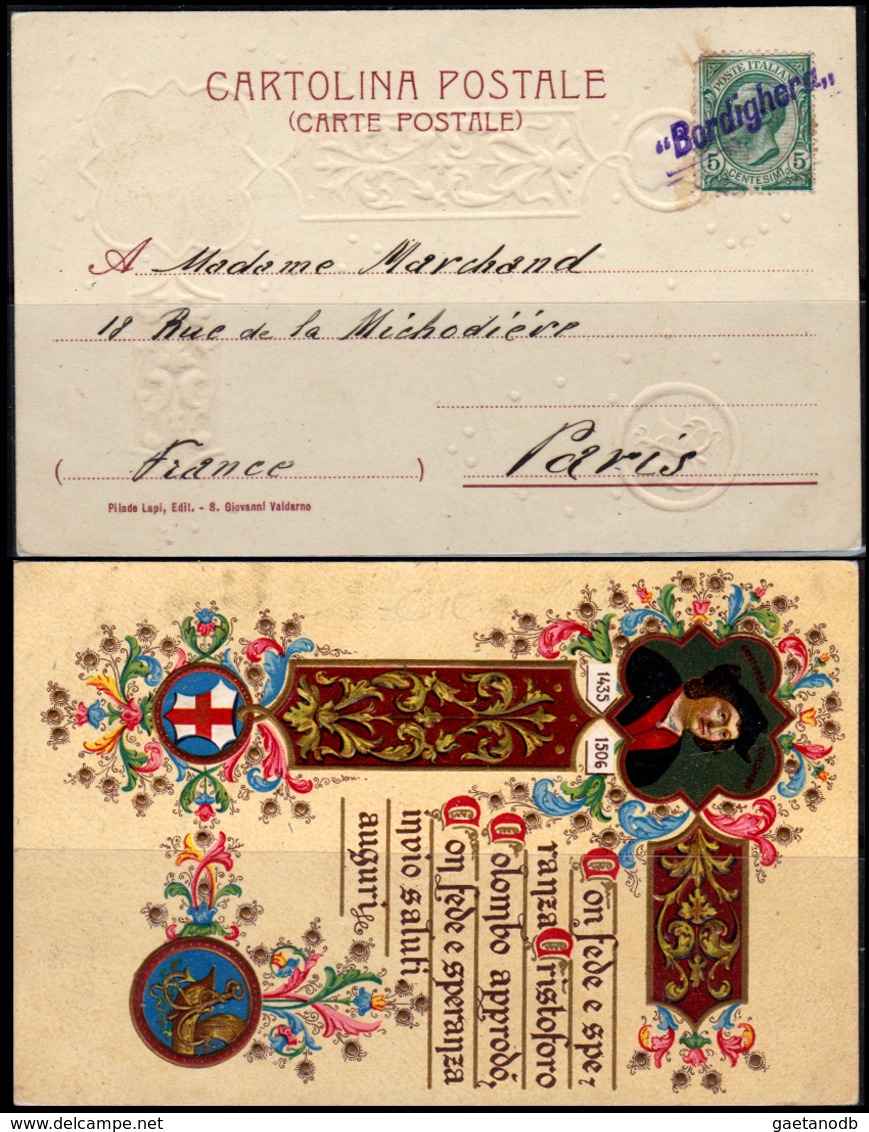 CARTOLINA POSTALE
(CARTE POSTALE)
POSTE ITALIANE
5 CENTESIMI 5
"Bordighera"
A Madame Marchand
18 Rue de la Michodiére
Paris
( France )
Pilade Lapi, Edit. - S. Giovanni Valdarno
CRISTOFORO COLOMBO
1435
1506
Con fede e spe-
ranza Cristoforo
Colombo approdò,
Con fede e speranza
invio saluti
auguri
gaetanodb
delcampe.net